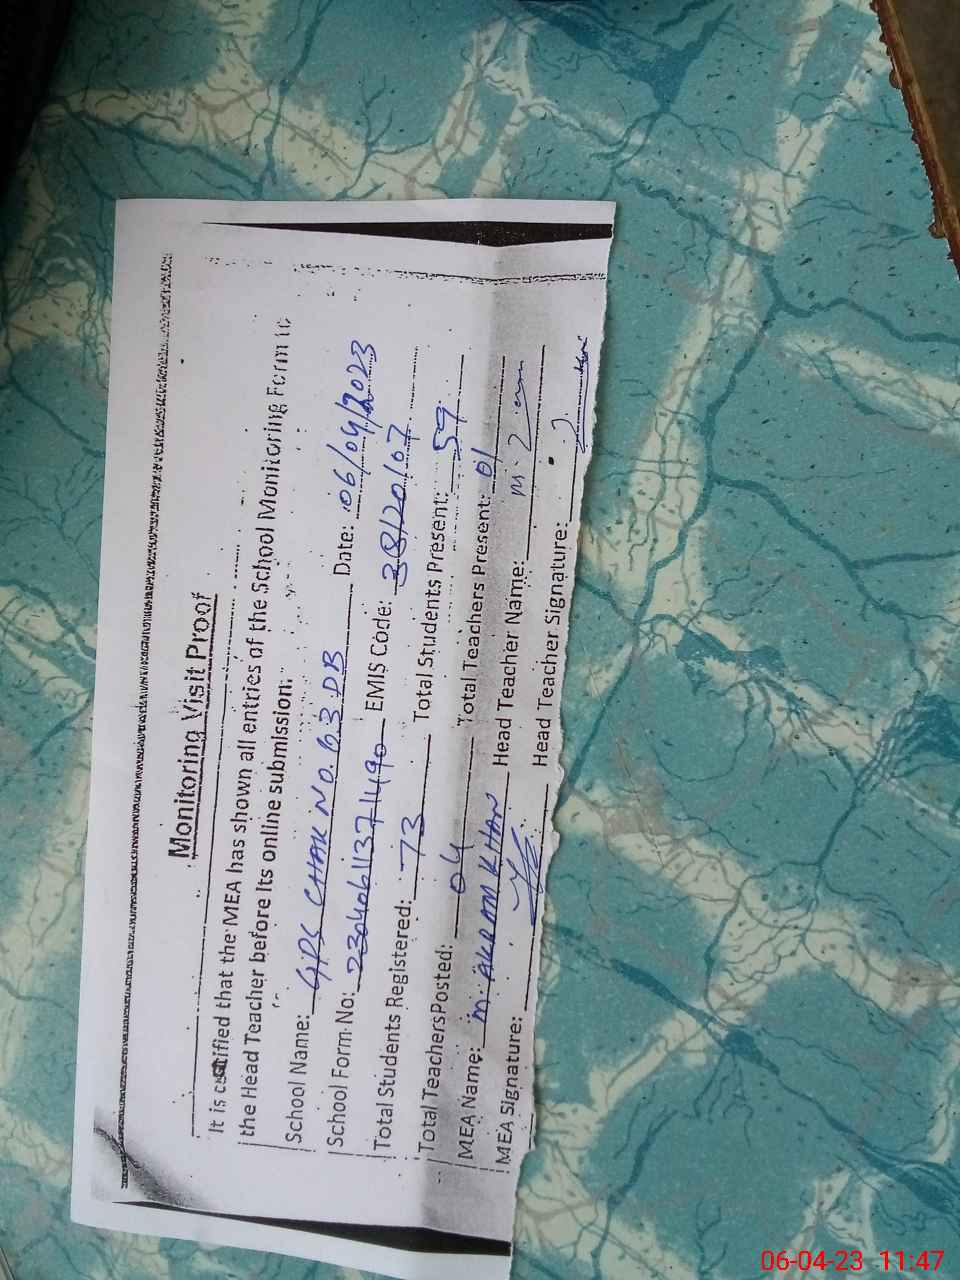 Monitoring Visit Proof
It is certified that the MEA has shown all entries of the School Monitoring Form to
the Head Teacher before Its online submission.
School Name: GPS CHAK NO. 63 DB Date: 06/04/2023
School Form No: 23040611371490 EMIS Code: 38120107
Total Students Registered: 73 Total Students Present: 59
Total Teachers Posted: 04 Total Teachers Present: 01
MEA Name: M. AKRAM KHAN Head Teacher Name:
MEA Signature: Head Teacher Signature:
06-04-23 11:47